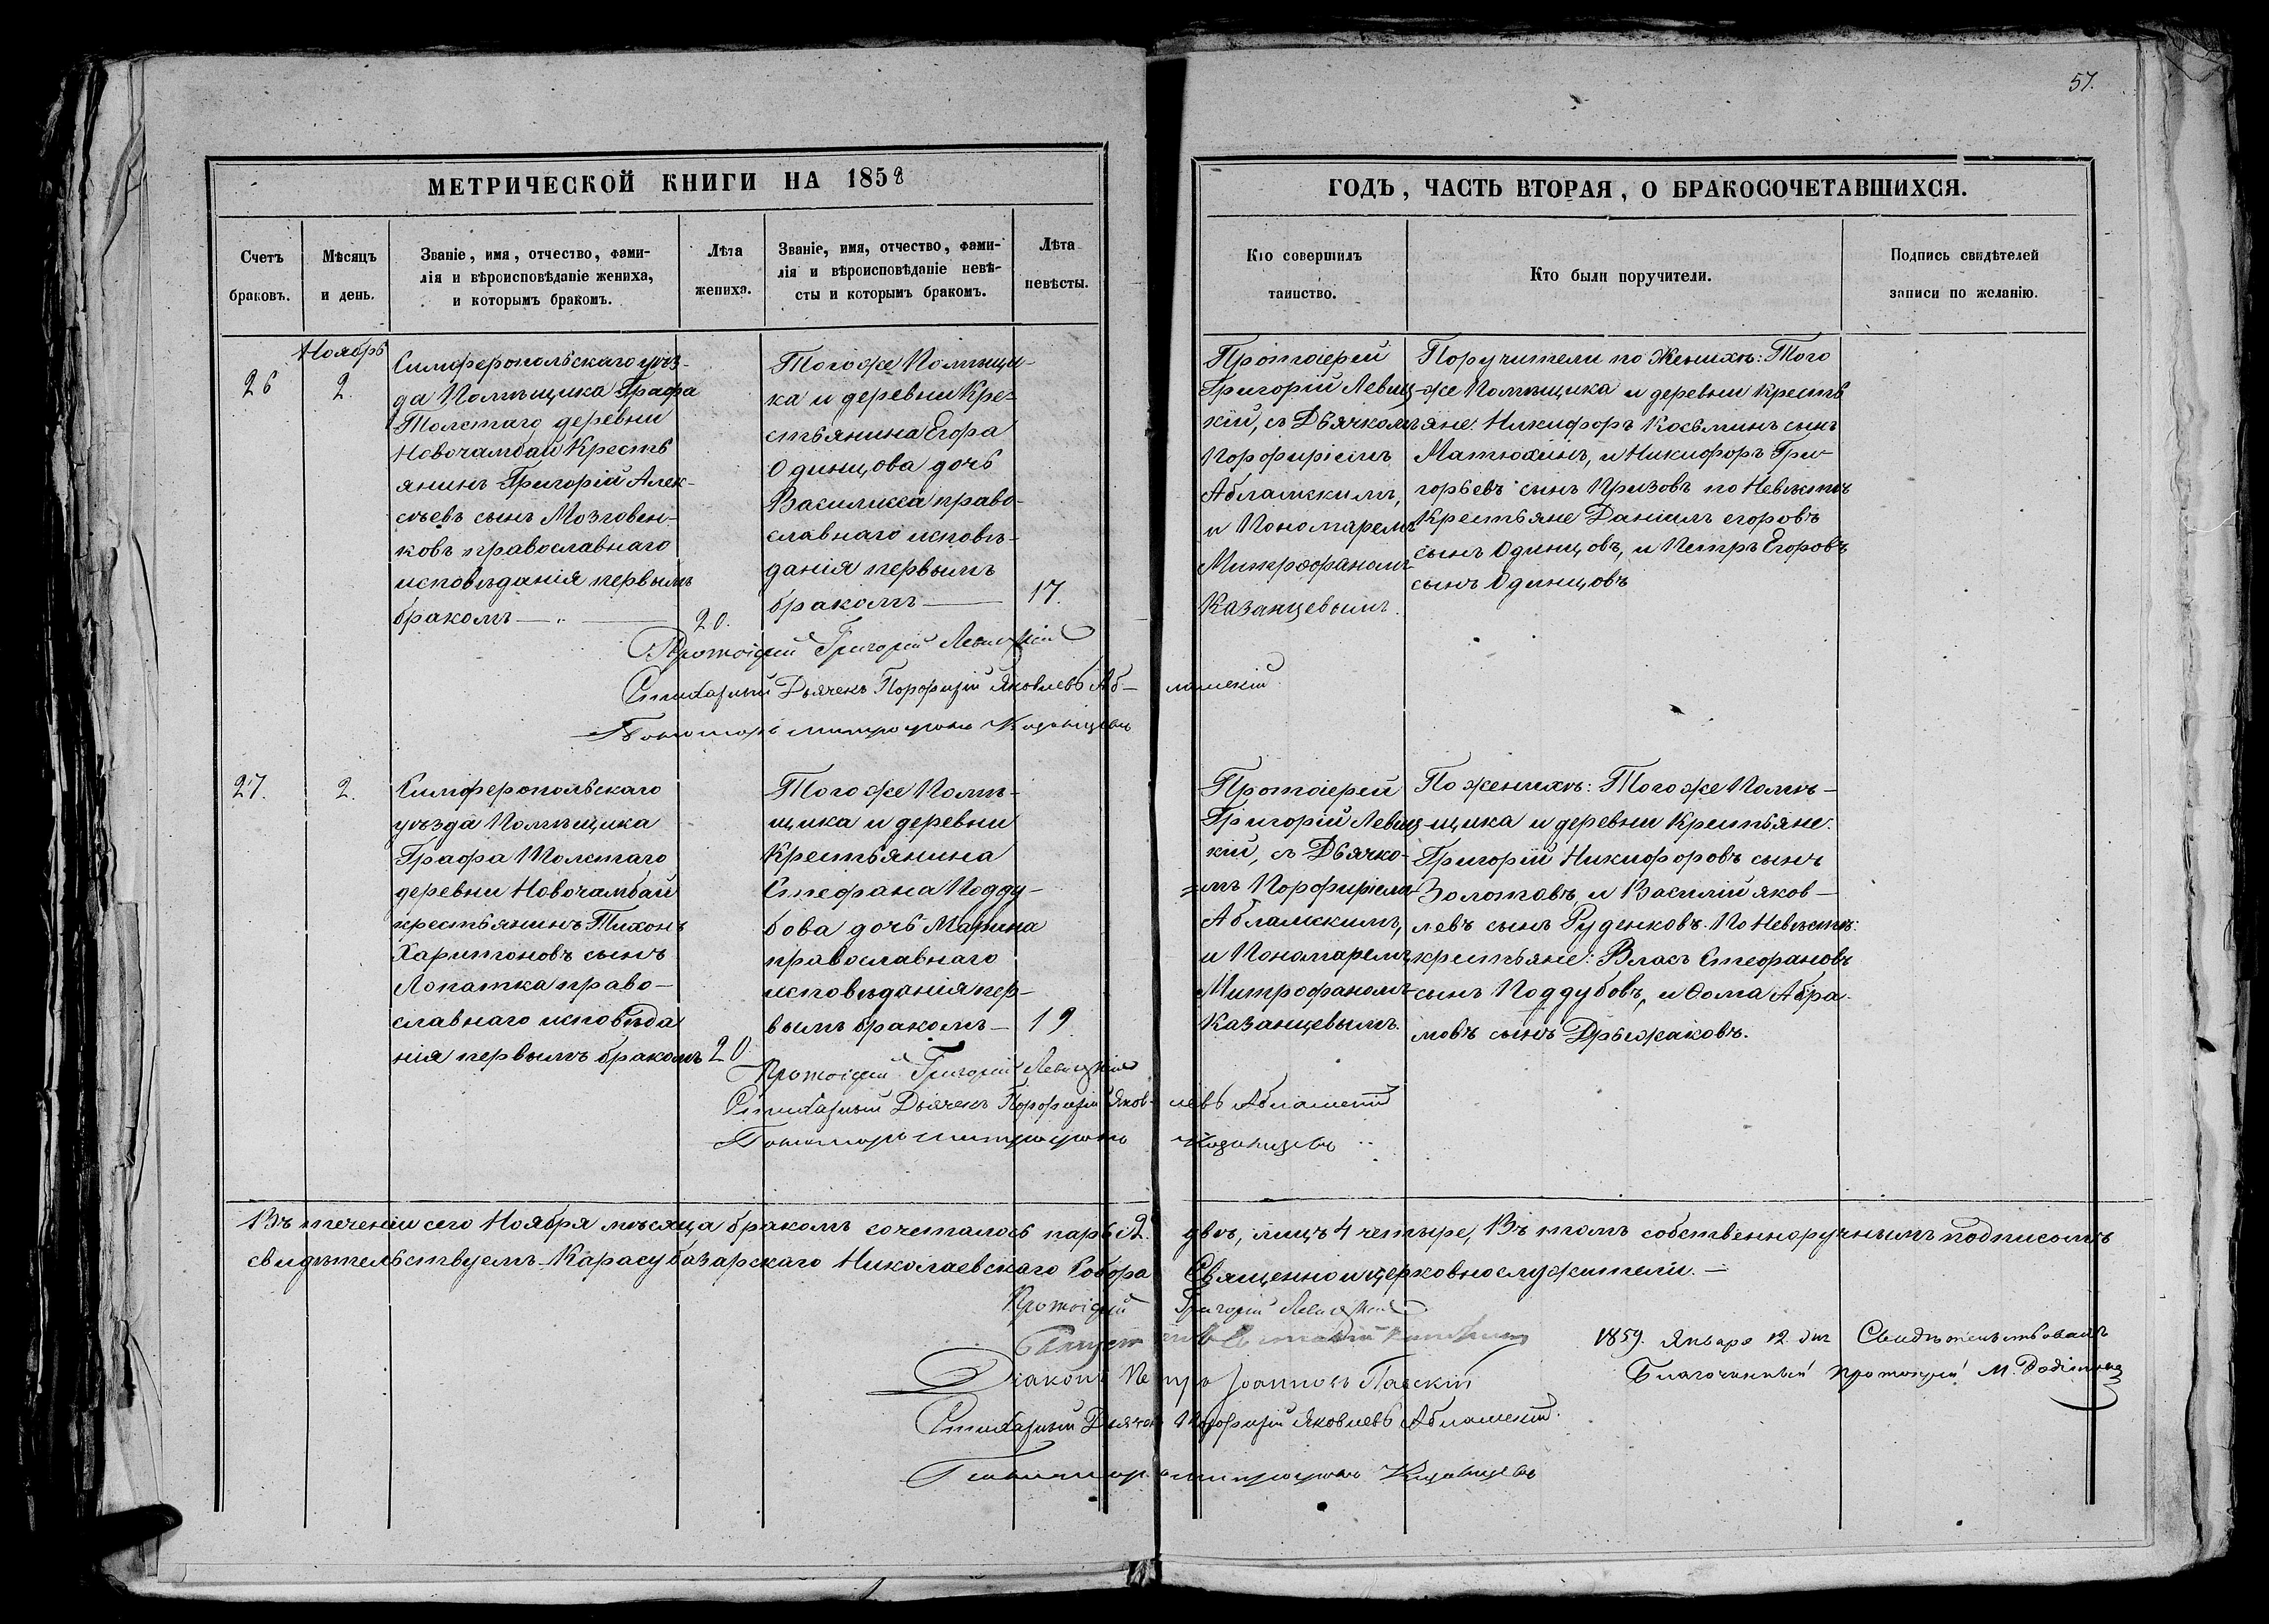 57.
МЕТРИЧЕСКОЙ КНИГИ НА 1858
Счетъ браковъ.
Мѣсяцъ и день.
Званіе, имя, отчество, фами-
лія и вѣроисповѣданіе жениха,
и которымъ бракомъ.
Лѣта жениха.
Званіе, имя, отчество, фами-
лія и вѣроисповѣданіе невѣ-
сты и которымъ бракомъ.
Лѣта невѣсты.
ГОДЪ, ЧАСТЬ ВТОРАЯ, О БРАКОСОЧЕТАВШИХСЯ.
Кто совершилъ
таинство.
Кто были поручители.
Подпись свидѣтелей
записи по желанію.
26
Ноябрь
2.
Симферопольскаго уѣз-
да Помѣщика Графа
Толстаго деревни
Новочамбай Кресть
янинъ Григорій Алек-
сѣевъ сынъ Мозговен-
ковъ православнаго
исповѣданія первымъ
бракомъ
20.
Того же Помѣщи-
ка и деревни Кре-
стьянина Егора
Одинцова дочь
Василиса право-
славнаго исповѣ-
данія первымъ
бракомъ
17.
Протоіерей
Григорій Левиц-
кій, съ Дьячкомъ
Порфиріемъ
Абламскимъ,
и Пономаремъ
Митрофаномъ
Казанцевымъ.
Поручители по Женихѣ: Того
же Помѣщика и деревни Кресть
яне: Никифоръ Косьминъ сынъ
Матюхинъ, и Никифоръ Гри-
горьевъ сынъ Призовъ по Невѣстѣ
Крестьяне Даніилъ Егоровъ
сынъ Одинцовъ, и Петръ Егоровъ
сынъ Одинцовъ
Протоіерей Григорій Левицкій
Стихарный Дьячекъ Порфирій Яковлевъ Аб-ламскій
Пономарь Митрофанъ Казанцевъ
27.
2.
Симферопольскаго
уѣзда Помѣщика
Графа Толстаго
деревни Новочамбай
крестьянинъ Тихонъ
Харитоновъ сынъ
Лопатка право-
славнаго исповѣда
нія первымъ бракомъ
20
Того же Помѣ-
щика и деревни
Крестьянина
Стефана Подду-
бова дочь Марина
православнаго
исповѣданія пер-
вымъ бракомъ
19
Протоіерей
Григорій Левиц-
кій, съ Дьячко-
=мъ Порфиріемъ
Абламскимъ,
и Пономаремъ
Митрофаномъ
Казанцевымъ.
По женихѣ: Того же Помѣ-
щика и деревни Крестьяне:
Григорій Никифоровъ сынъ
Золотовъ, и Василій Яков-
левъ сынъ Руденковъ. По Невѣстѣ:
крестьяне: Власъ Стефановъ
сынъ Поддубовъ, и Ѳома Абра-
мовъ сынъ Дрыжаковъ.
Протоіерей Григорій Левицкій
Стихарный Дьячекъ Порфирій Яковлевъ Абламскій
Пономарь Митрофанъ Казанцевъ
Въ теченіи сего Ноября мѣсяца бракомъ сочеталось паръ 2. двѣ, лицъ 4 четыре, Въ томъ собственноручнымъ подписомъ
свидѣтельствуемъ Карасубазарскаго Николаевскаго Собора Священно и церковнослужители.
Протоіерей Григорій Левицкій
Діаконъ Петръ Іоанновъ Павскій
Стихарный Дьячекъ Порфирій Яковлевъ Абламскій.
Пономарь Митрофанъ Казанцевъ
1859. Января 12 дня Свидѣтельствовалъ
Благочинный Протоіерей М.